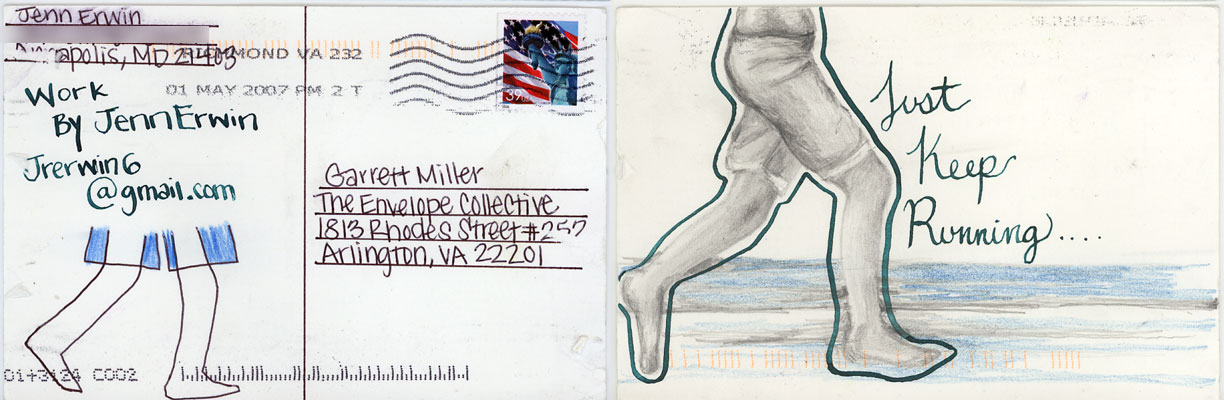 Jenn Erwin
Annapolis, MD 21403
RICHMOND VA 232
01 MAY 2007 PM 2 T
39
Work
By Jenn Erwin
Jrerwin6
@gmail.com
Garrett Miller
The Envelope Collective
1813 Rhodes Street #257
Arlington, VA 22201
01+3124 C002
Just
Keep
Running....